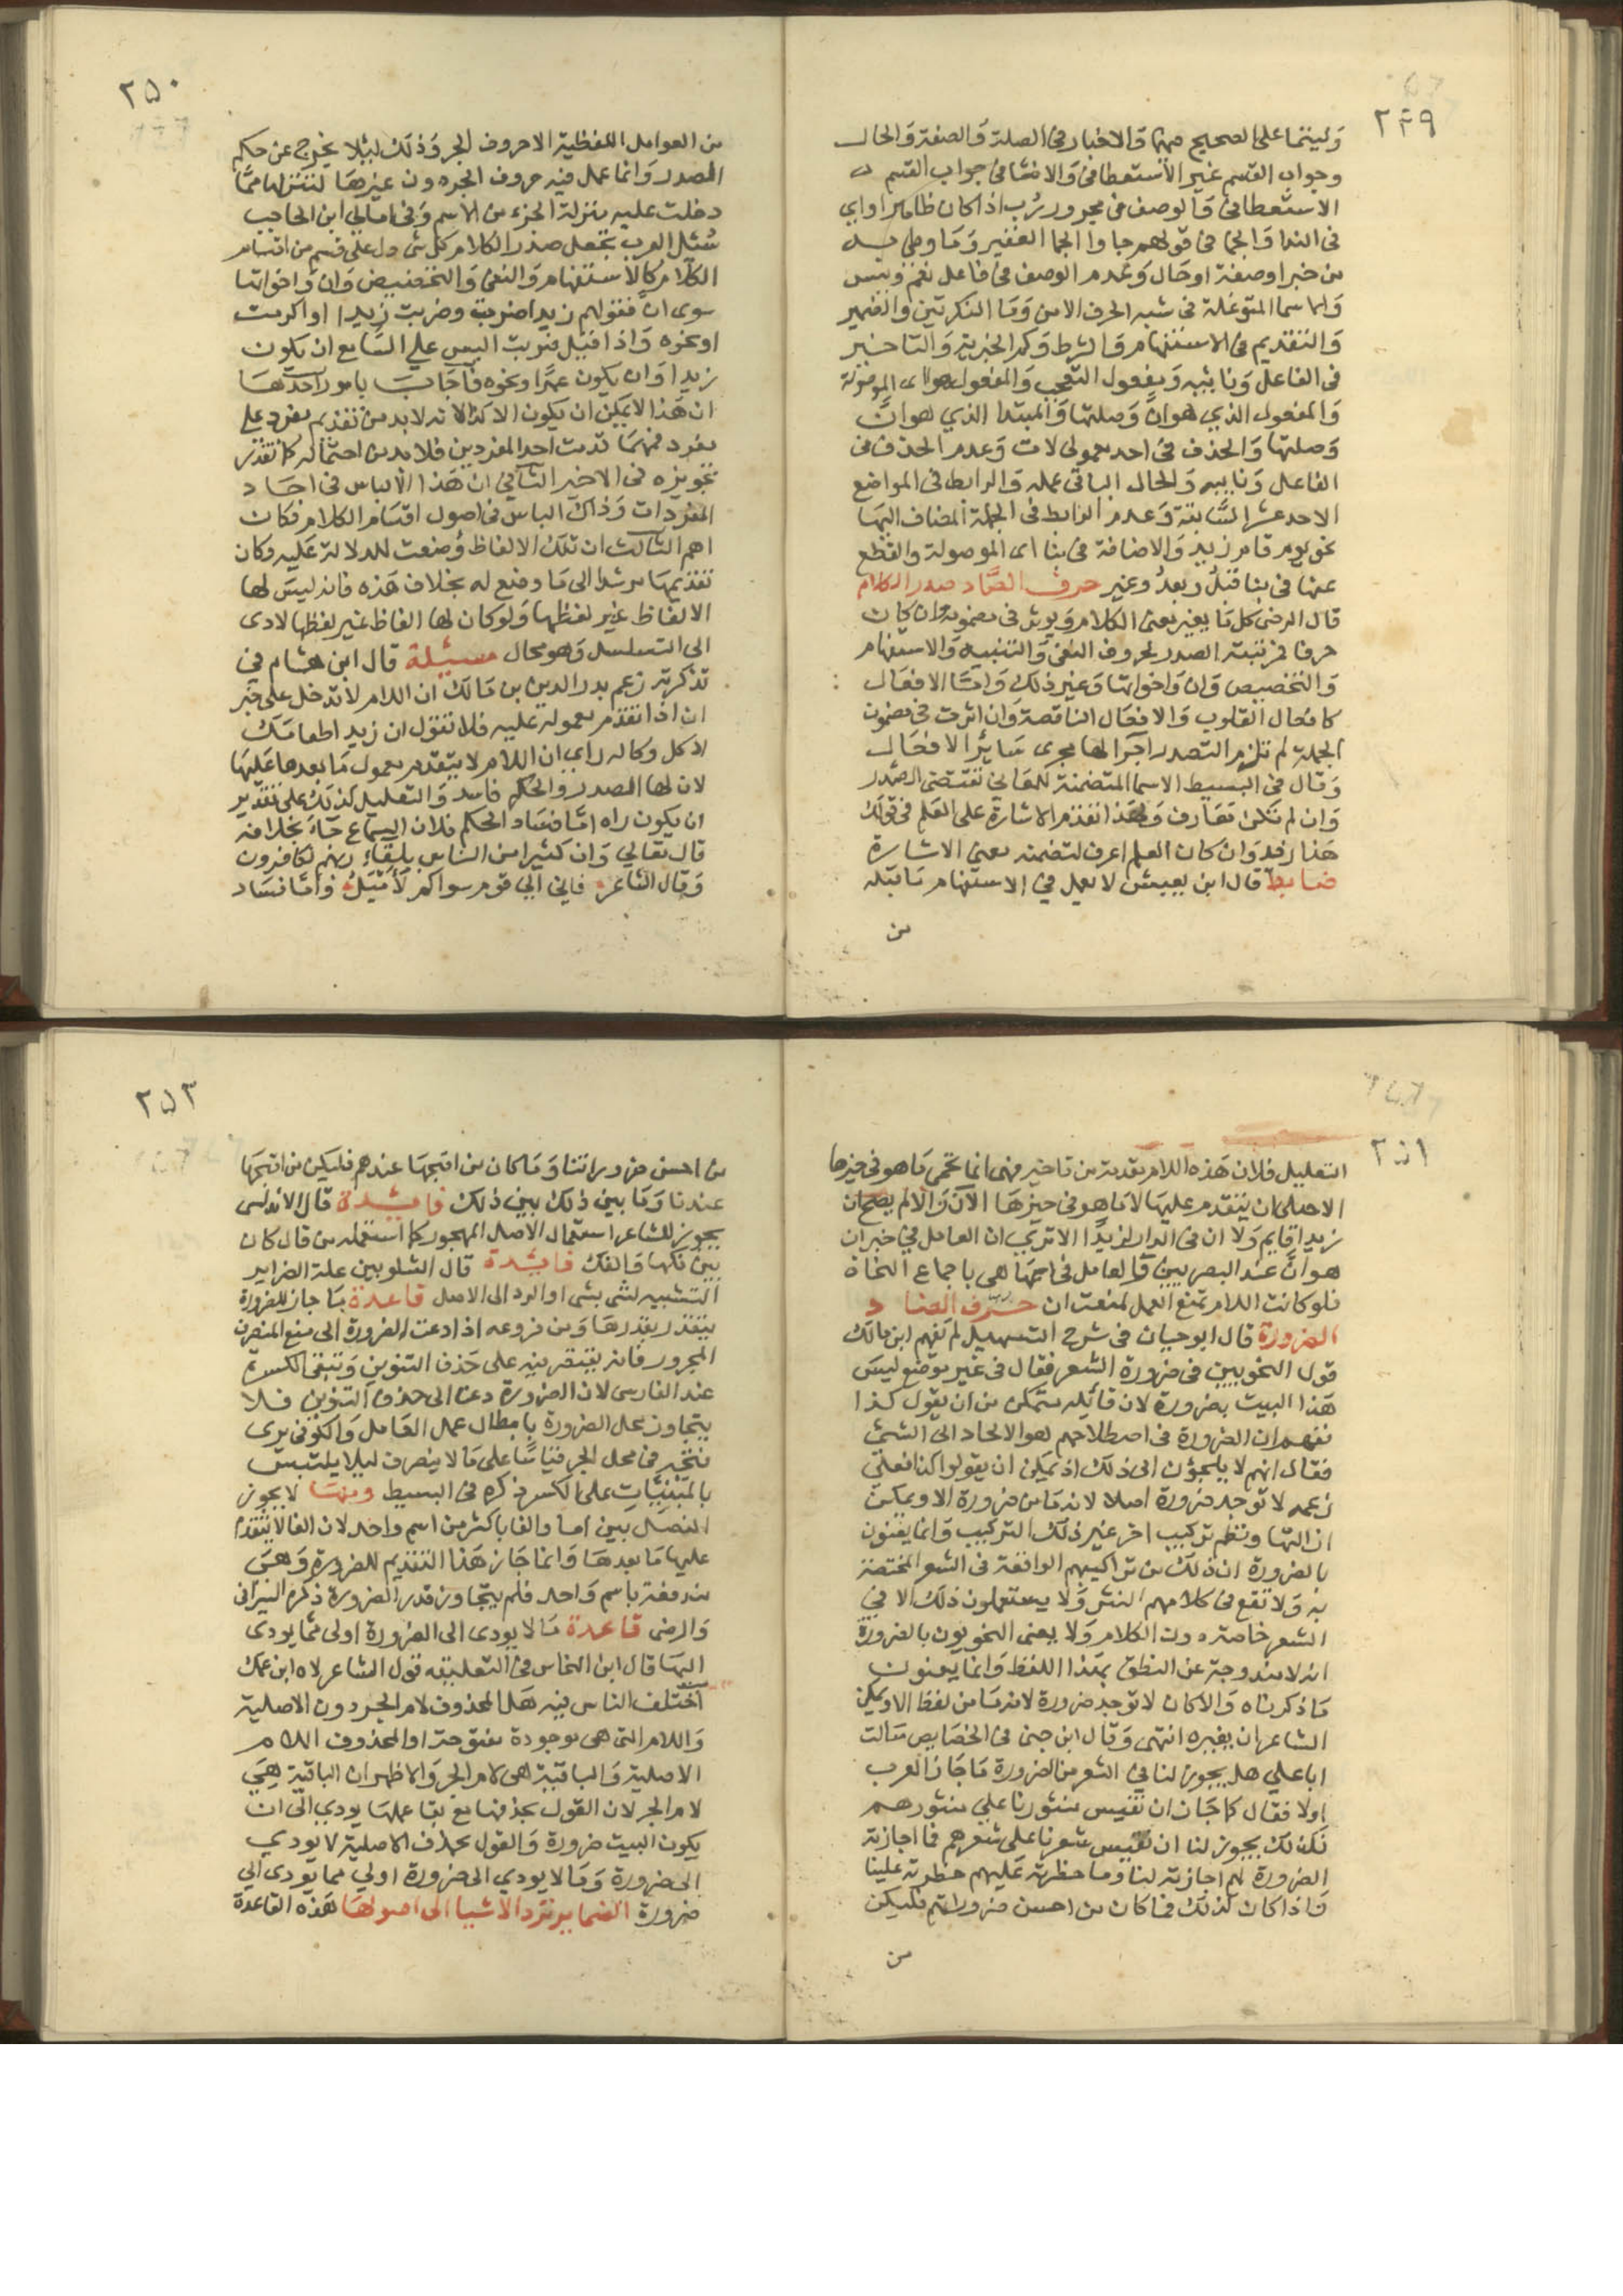 ٢٤٩
وليتما على الصحيح منهما والاخبار في الصلة والصفة والحال
وجواب القسم غير الاستعطافي والانشا في جواب القسم
الاستعطافي والوصف في مجرور رُب اذا كان ظاهرا واي
في الندا والجما في قولهم جاوا الجما الغفير وما وطي به
من خبر او صفة او حال وعدم الوصف في فاعل نعم وبيس
والاسما المتوغلة في شبه الحرف الا من وما النكرتين والضمير
والتقديم في الاستفهام والشرط وكم الخبرية والتاخير
في الفاعل ونايبه ومفعول التعجب والمفعول هو اى الموصولة
والمفعول الذي هو انّ وصلتها والمبتدا الذي هو انّ
وصلتها والحذف في احد معمولى لات وعدم الحذف في
الفاعل ونايبه والحال الباقى عمله والرابط في المواضع
الاحد عشر السابقة وعدم الرابط في الجملة المضاف اليها
نحو يوم قام زيد والاضافة في بنا اى الموصولة والقطع
عنها في بنا قبلُ وبعدُ وغير حرف الصاد صدر الكلام
قال الرضى كل ما يغير معنى الكلام ويوثر في مضمونه وان كان
حرفا فمرتبته الصدر كحروف النفى والتنبيه والاستفهام
والتخصيص وان واخواتها وغير ذلك وامّا الافعال
كافعال القلوب والافعال الناقصة وان اثرت في مضمون
الجملة لم تلزم التصدر اجرا لها مجرى ساير الافعال
وقال في البسيط الاسما المتضمنة للمعاني تقتضى الصدر
وان لم تكن معارف ولهذا تقدم الاشارة على العلم في قولك
هذا زيد وان كان العلم اعرف لتضمنه معنى الاشارة
ضابط قال ابن يعيش لا يعمل في الاستفهام ما قبله
من
٢٥٠
من العوامل اللفظية الا حروف الجر وذلك ليلا يخرج عن حكم
الصدر وانما عمل فيه حروف الجر دون غيرها لتنزلها مما
دخلت عليه منزلة الجزء من الاسم وفي امالي ابن الحاجب
سُئل العرب تجعل صدر الكلام كل شى دل على قسم من اقسام
الكلام كالاستفهام والنفى والتحضيض وان واخواتها
سوى انّ فقولهم زيدا ضربت وضربت زيدا او اكرمت
او نحوه واذا قيل ضربت البس على السامع ان يكون
زيدا وان يكون عمرا ونحوه فاجاب بامور احدها
ان هذا لا يمكن ان يكون الا كذا لانه لا بد من تقديم مفرد على
مفرد فمهما قدمت احد المفردين فلا بد من احتماله كل تقدير
تجويزه في الاخير الثاني ان هذا الالباس في احاد
المفردات وذاك الباس في اصول اقسام الكلام فكان
اهم الثالث ان تلك الالفاظ وُضعت للدلالة عليه وكان
تقديمها مرشدا الى ما وضع له بخلاف هذه فانه ليس لها
الالفاظ غير لفظها ولو كان لها الفاظ غير لفظها لادى
الى التسلسل وهو محال مسئلة قال ابن هشام في
تذكرته زعم بدر الدين بن مالك ان اللام لا تدخل على خبر
ان اذا تقدم معموله عليه فلا تقول ان زيدا طعامك
لاكل وكانه راى ان اللام لا يتقدم معمول ما بعدها عليها
لان لها الصدر والحكم فاسد والتعليل كذلك على تقدير
ان يكون راه امّا فساد الحكم فلان السماع جاء بخلافه
قال تعالي وان كثيرا من الناس بلقاء ربهم لكافرون
وقال الشاعر فاني الى قوم سواكم لأَمْيَلُ وامّا فساد
٢٥١
التعليل فلان هذه اللام مقدمة من تاخير فهى انما تحمى ما هو في حيزها
الاصلى ان يتقدم عليها لا ما هو في حيزها الآن والا لم يصح ان
زيدا قايم ولا ان في الدار لزيدًا الا ترى ان العامل في خبر ان
هو انّ عند البصريين والعامل في اسمها هى باجماع النحاة
فلو كانت اللام تمنع العمل لمنعت ان حَرف الضاد
الضرورة قال ابو حيان في شرح التسهيل لم يفهم ابن مالك
قول النحويين في ضرورة الشعر فقال في غير موضع ليس
هذا البيت بضرورة لان قايله متمكن من ان يقول كذا
ففهم ان الضرورة في اصطلاحهم هو الالجاء الى الشئ
فقال انهم لا يلجوون الى ذلك اذ يمكن ان يقولوا كذا فعلى
زعمه لا توجد ضرورة اصلا لانه ما من ضرورة الا ويمكن
ازالتها ونظم تركيب اخر غير ذلك التركيب وانما يعنون
بالضرورة ان ذلك من تراكيبهم الواقعة في الشعر المختصة
به ولا تقع في كلامهم النثر ولا يستعملون ذلك الا في
الشعر خاصة دون الكلام ولا يعنى النحويون بالضرورة
انه لا مندوحة عن النطق بهذا اللفظ وانما يعنون
ما ذكرناه والا كان لا توجد ضرورة لانه ما من لفظ الا ويمكن
الشاعر ان يغيره انتهى وقال ابن جنى في الخصايص سالت
ابا علي هل يجوز لنا في الشعر من الضرورة ما جاز للعرب
اولا فقال كما جاز ان نقيس منثورنا على منثورهم
فكذلك يجوز لنا ان نقيس شعرنا على شعرهم فما اجازته
الضرورة لهم اجازته لنا وما حظرته عليهم حظرته علينا
واذا كان كذلك فما كان من احسن ضروراتهم فليكن
من
٢٥٢
من احسن ضروراتنا وما كان من اقبحها عندهم فليكن من اقبحها
عندنا وما بين ذلك بين ذلك فايدة قال الاندلسى
يجوز للشاعر استعمال الاصل المهجور كما استعمله من قال كان
بين فكها والفك فايدة قال الشلوبين علة الضراير
التشبيه لشى بشى او الرد الى الاصل قاعدة ما جاز للضرورة
يتقدر بقدرها ومن فروعه اذا دعت الضرورة الى منع المنصرف
المجرور فانه يقتصر فيه على حذف التنوين وتبقى الكسرة
عند الفارسى لان الضرورة دعت الى حذف التنوين فلا
يتجاوز محل الضرورة بابطال عمل العامل والكوفي يرى
فتحه في محل الجر قياسًا على ما لا ينصرف ليلا يلتبس
بالمبنيات على الكسر ذكره في البسيط ومنها لا يجوز
الفصل بين اما والفا باكثر من اسم واحد لان الفا لا يتقدم
عليها ما بعدها وانما جاز هذا التقديم للضرورة وهي
مندفعة باسم واحد فلم يتجاوز قدر الضرورة ذكره السيرافي
والرضى قاعدة ما لا يودى الى الضرورة اولى مما يودى
اليها قال ابن النحاس في التعليقه قول الشاعر لاه ابن عمك
اختلف الناس فيه هل المحذوف لام الجر دون الاصلية
واللام التى هى موجودة مفتوحة او المحذوف اللام
الاصلية والباقية هى لام الجر والاظهر ان الباقية هى
لام الجر لان القول بحذفها مع بقا عملها يودى الى ان
يكون البيت ضرورة والقول بحذف الاصلية لا يودى
الى ضرورة وما لا يودي الى ضرورة اولي مما يودى الى
ضرورة الضماير ترد الاشيا الى اصولها هذه القاعدة